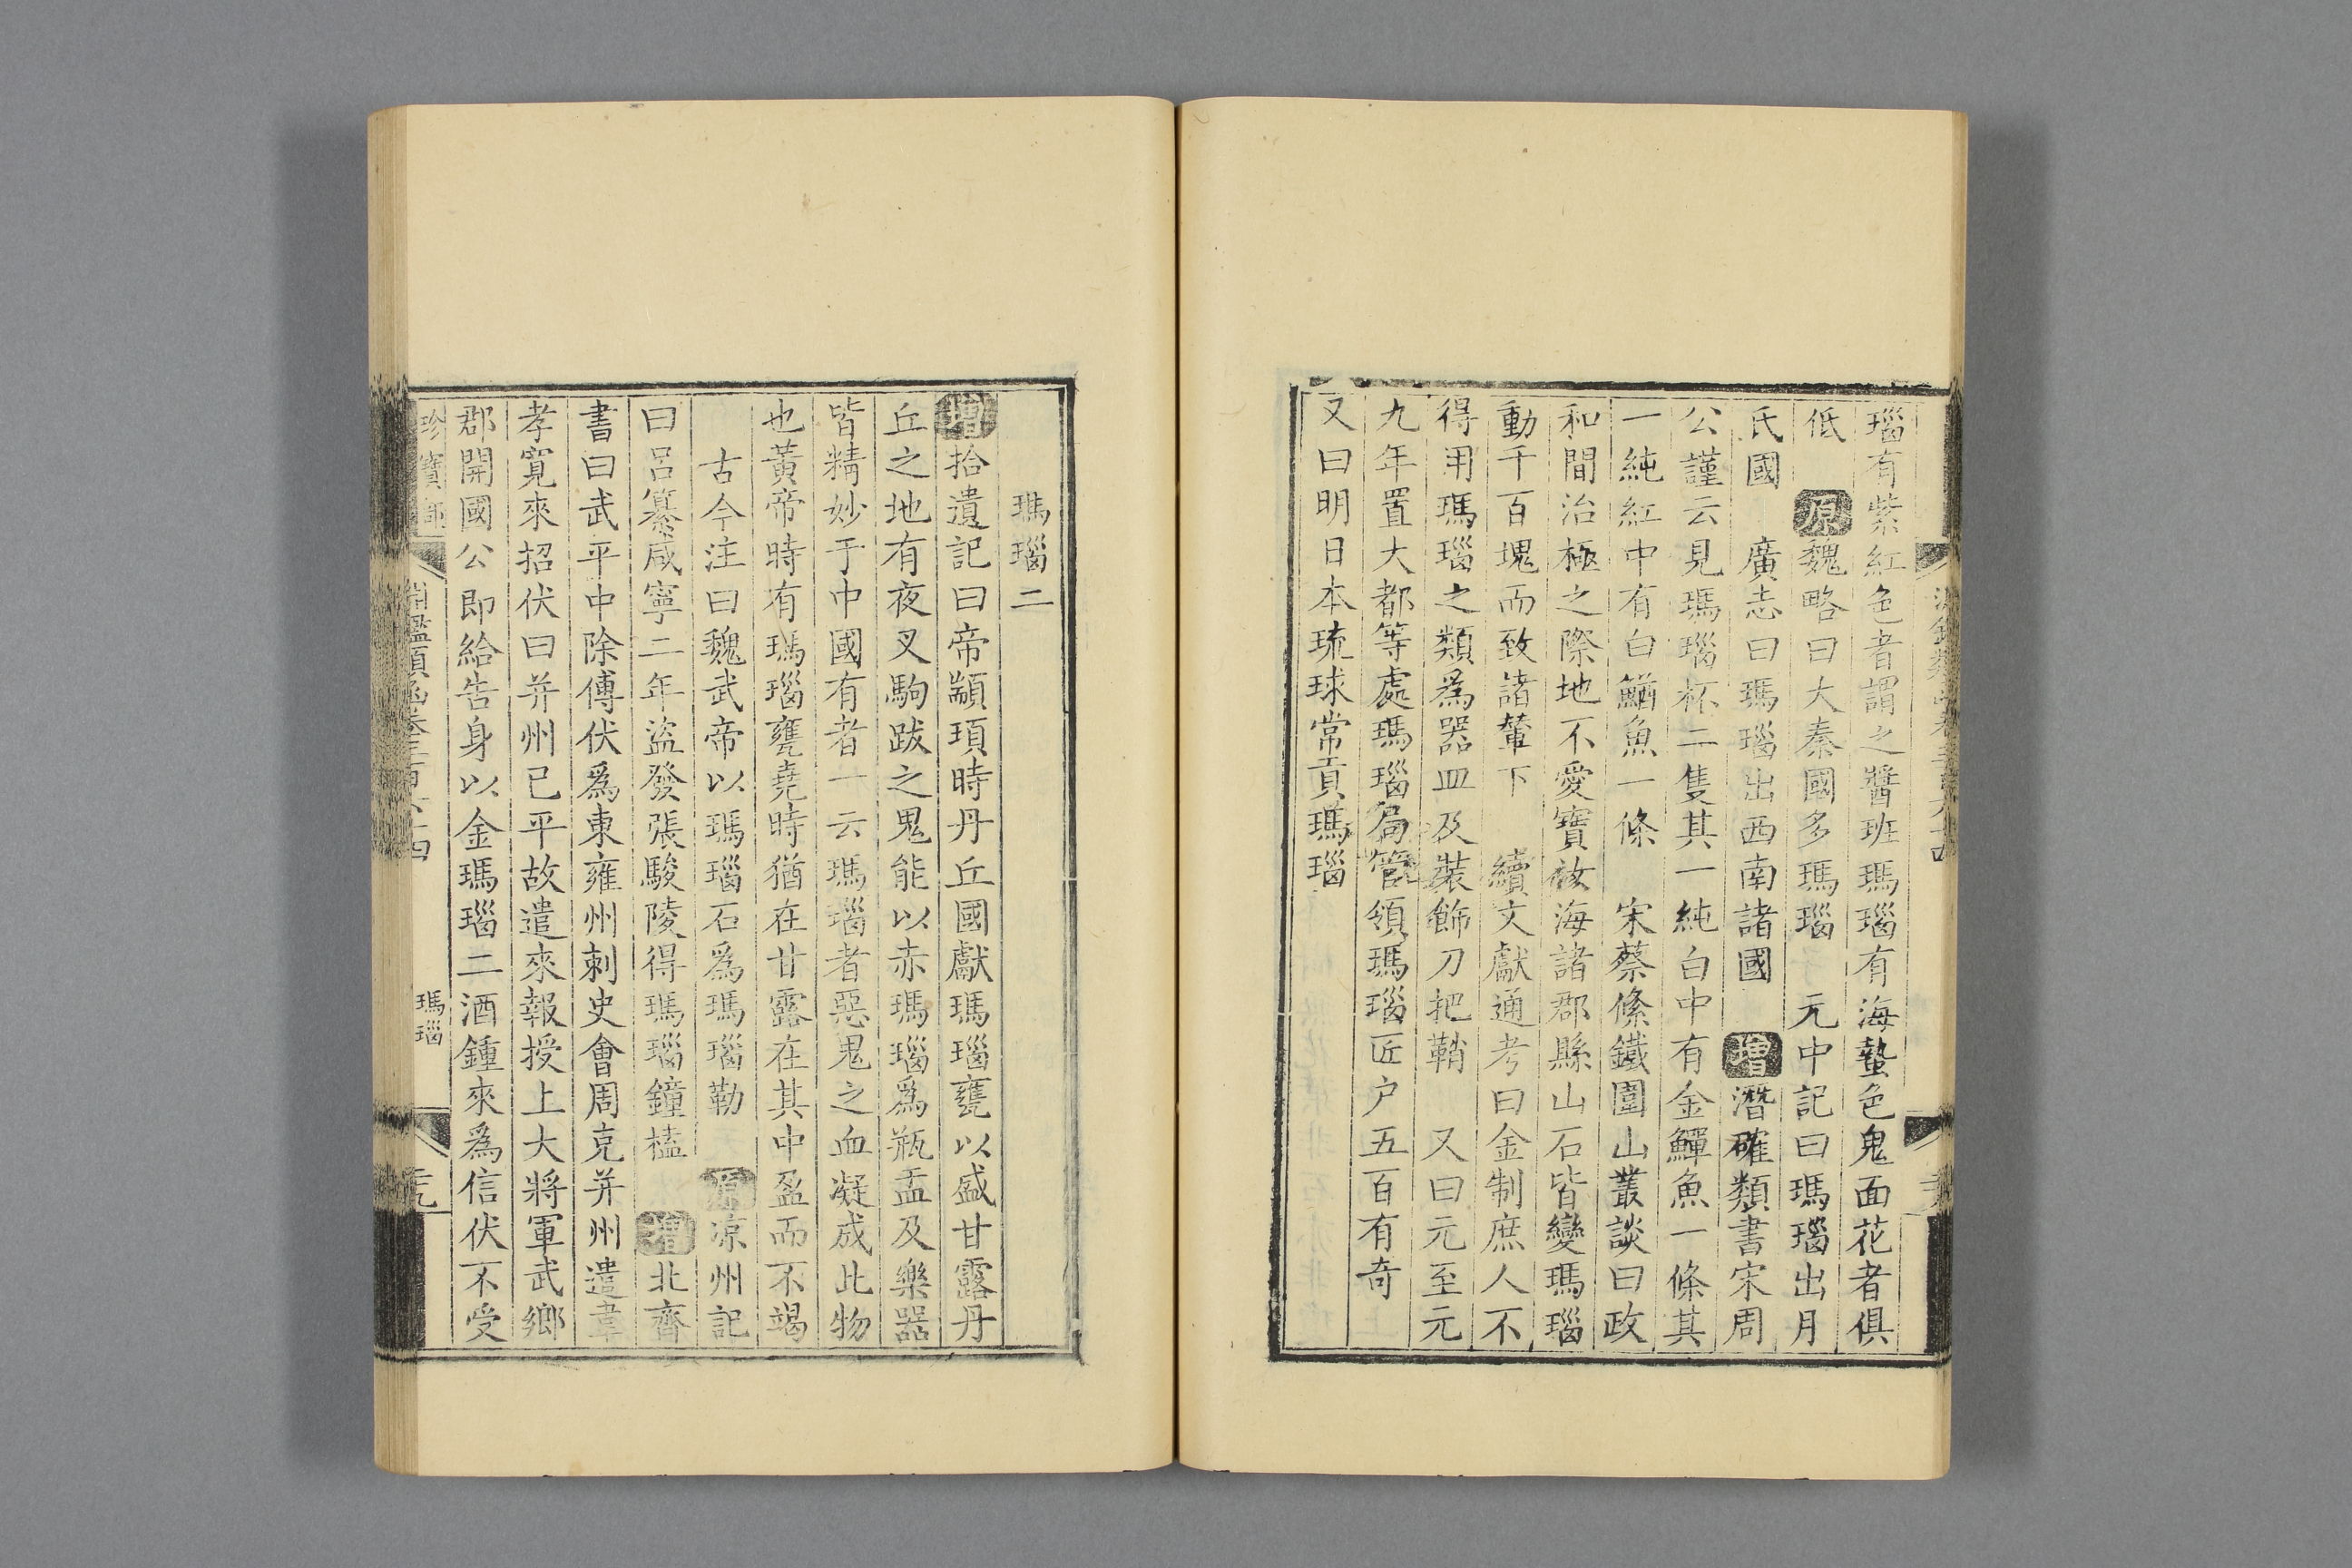 瑙有紫紅色者謂之醬班瑪瑙有海蟄色鬼面花者俱
低 原魏略曰大秦國多瑪瑙 元中記曰瑪瑙出月
氏國 廣志曰瑪瑙出西南諸國 增潛確類書宋周
公謹云見瑪瑙杯二隻其一純白中有金鱓魚一條其
一純紅中有白鰌魚一條 宋蔡絛鐵圍山叢談曰政
和間治極之際地不愛寶故海諸郡縣山石皆變瑪瑙
動千百塊而致諸輦下 續文獻通考曰金制庶人不
得用瑪瑙之類爲器皿及裝飾刀把鞘 又曰元至元
九年置大都等處瑪瑙局管領瑪瑙匠户五百有奇
又曰明日本琉球常貢瑪瑙
瑪瑙二
增拾遺記曰帝顓頊時丹丘國獻瑪瑙甕以盛甘露丹
丘之地有夜叉駒跋之鬼能以赤瑪瑙爲瓶盂及樂器
皆精妙于中國有者一云瑪瑙者惡鬼之血凝成此物
也黃帝時有瑪瑙甕堯時猶在甘露在其中盈而不竭
古今注曰魏武帝以瑪瑙石爲瑪瑙勒 原凉州記
曰呂纂咸寧二年盜發張駿陵得瑪瑙鐘榼 增北齊
書曰武平中除傅伏爲東雍州刺史會周克并州遣韋
孝寬來招伏曰并州已平故遣來報授上大將軍武鄉
郡開國公即給告身以金瑪瑙二酒鍾來爲信伏不受
珍寶部 淵鑑類函卷三百六十四 瑪瑙